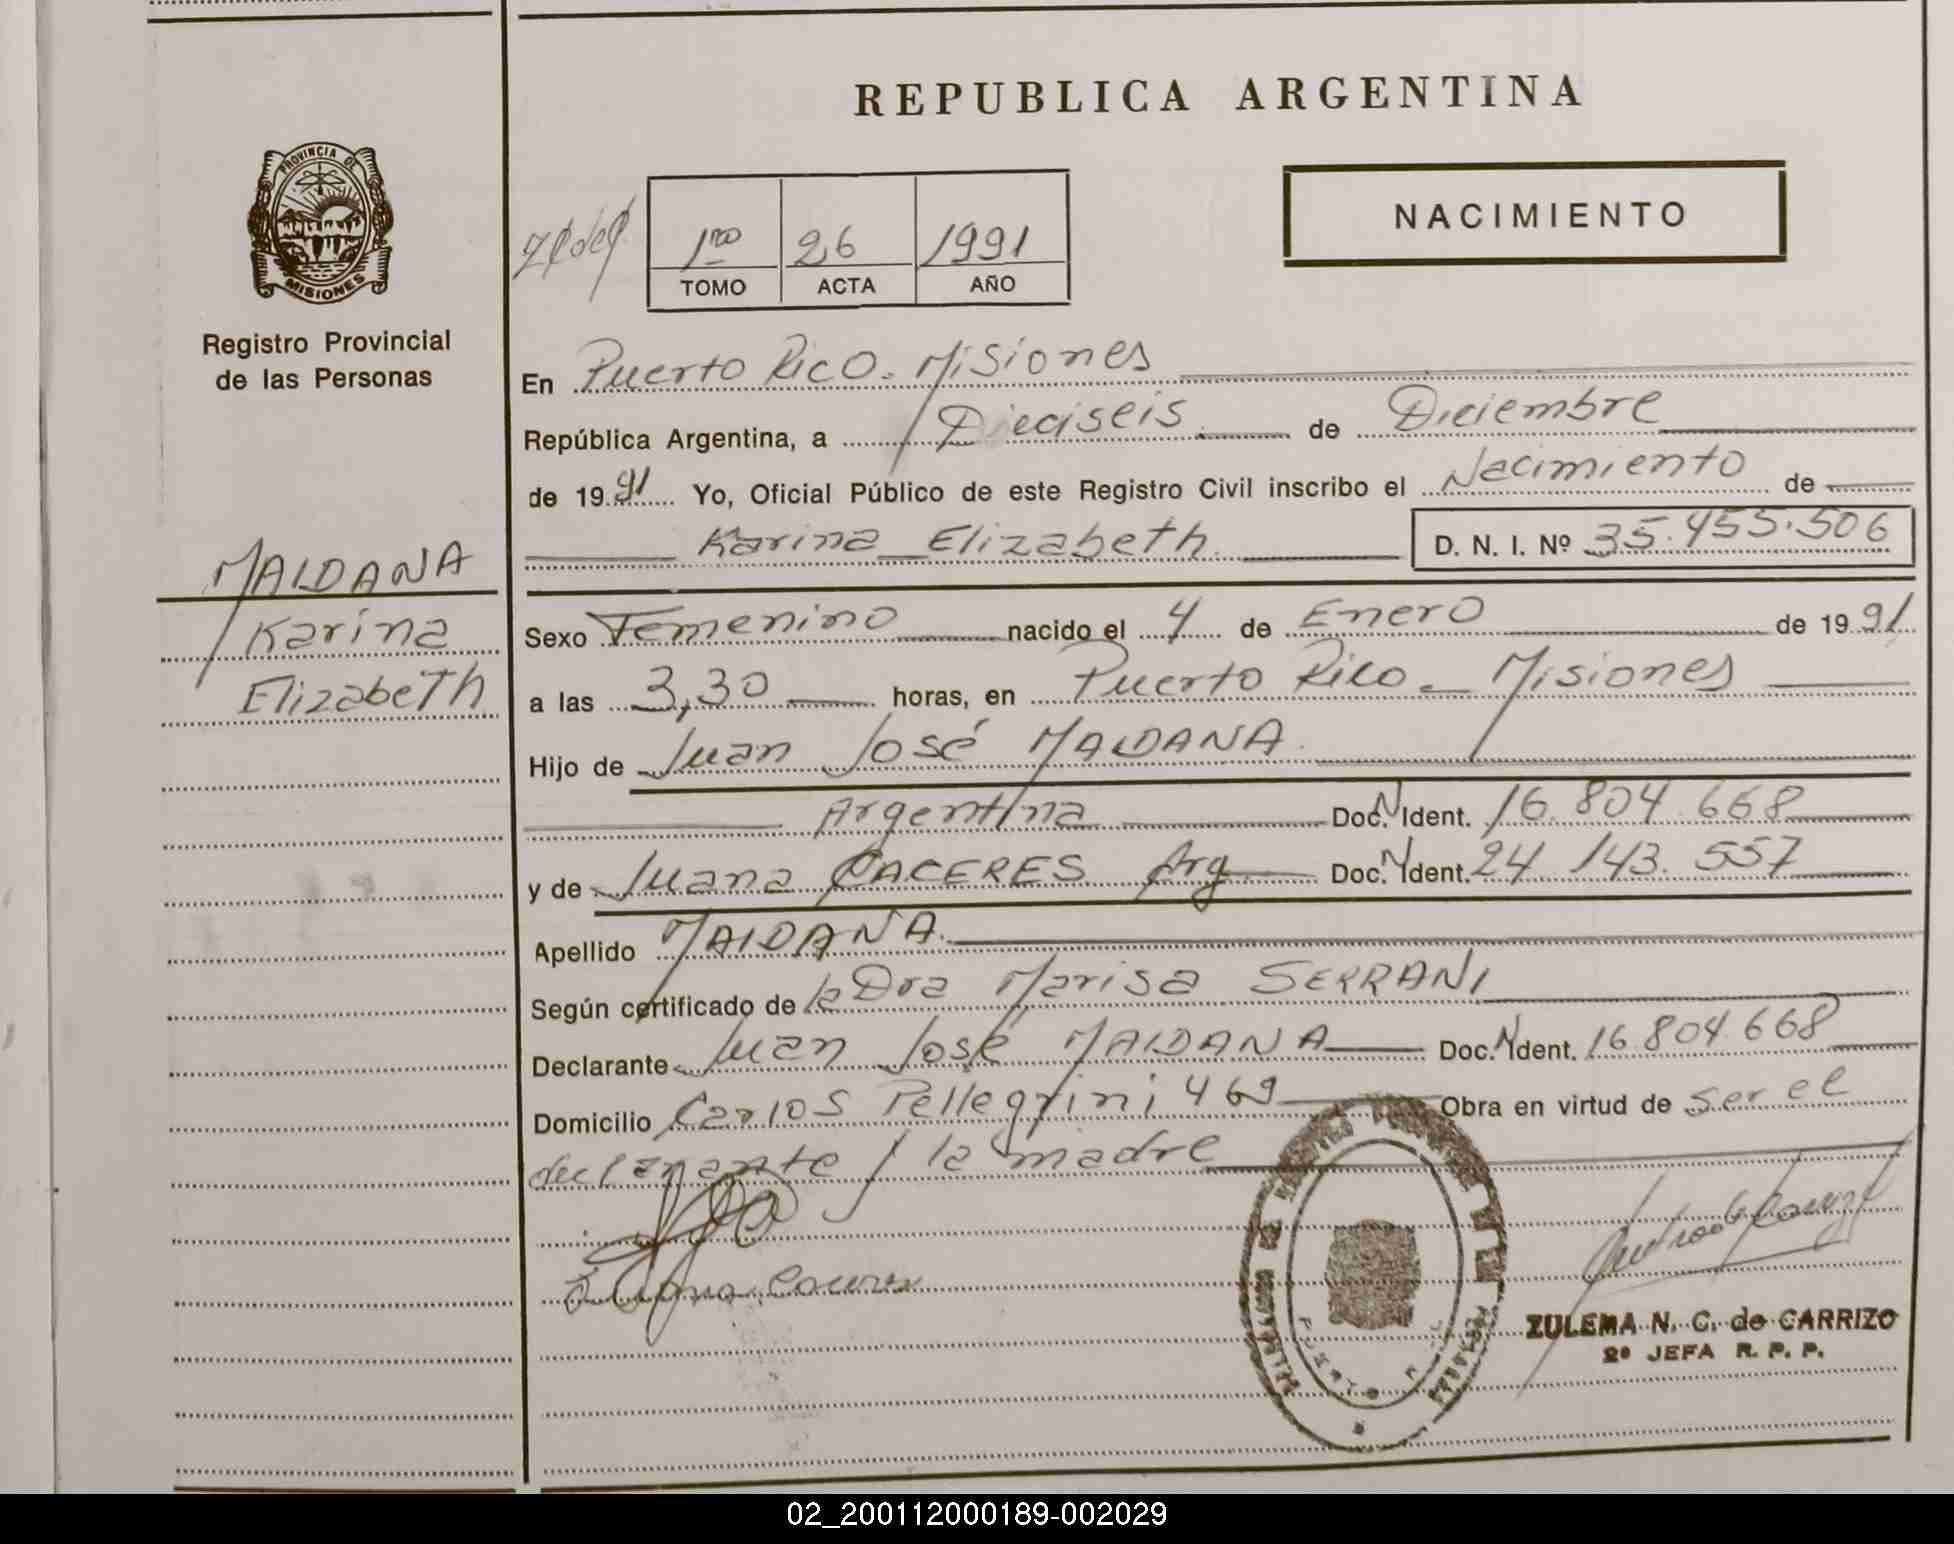 REPUBLICA ARGENTINA
PROVINCIA DE
MISIONES
Registro Provincial
de las Personas
NACIMIENTO
1ro 26 1991
TOMO ACTA AÑO
En Puerto Rico. Misiones
República Argentina, a Dieciseis de Diciembre
de 1991 Yo, Oficial Público de este Registro Civil inscribo el Nacimiento de
Karina Elizabeth D. N. I. Nº 35.455.506
MALDANA
Karina
Elizabeth
Sexo Femenino nacido el 4 de Enero de 1991
a las 3,30 horas, en Puerto Rico - Misiones
Hijo de Juan José MALDANA
Argentina Doc. N Ident. 16.804.668
y de Juana CACERES Arg Doc. N Ident. 24.143.557
Apellido MALDANA
Según certificado de la Dra Marisa SERRANI
Declarante Juan José MALDANA Doc. N Ident. 16.804.668
Domicilio Carlos Pellegrini 469 Obra en virtud de ser el
declarante / la madre
PUERTO
ZULEMA N. C. de CARRIZO
2º JEFA R. P. P.
02_200112000189-002029